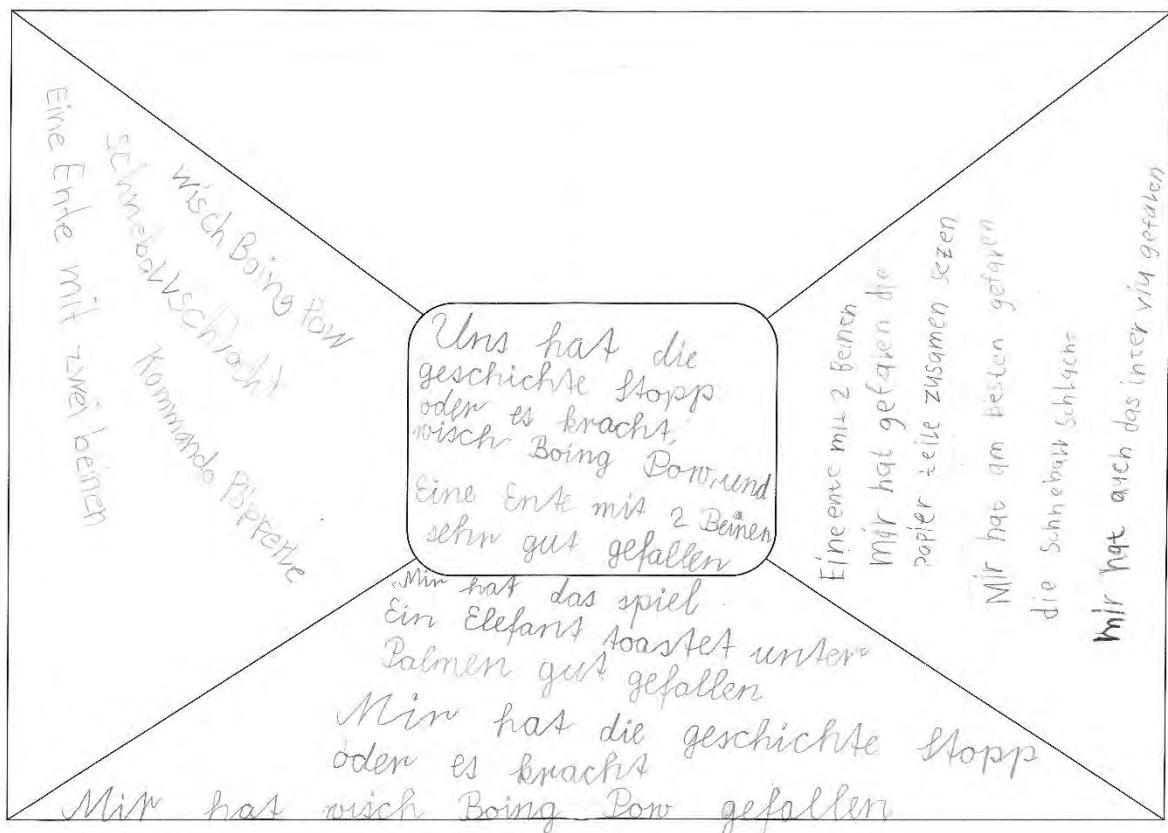 Eine Ente mit zwei beinen
schneballschlacht
wisch Boing Pow
Kommando Pöpperle
Uns hat die
geschichte Stopp
oder es kracht,
wisch Boing Pow, und
Eine Ente mit 2 Beinen
sehr gut gefallen
Mir hat das spiel
Ein Elefant toastet unter
Palmen gut gefallen
Mir hat die geschichte Stopp
oder es kracht
Mir hat wisch Boing Pow gefallen
Eine ente mit 2 Beinen
Mir hat gefaren die
Papier teile zusamen sezen
Mir hat am besten gefaren
die schneball schlacht
mir hat auch das inter viu gefallen